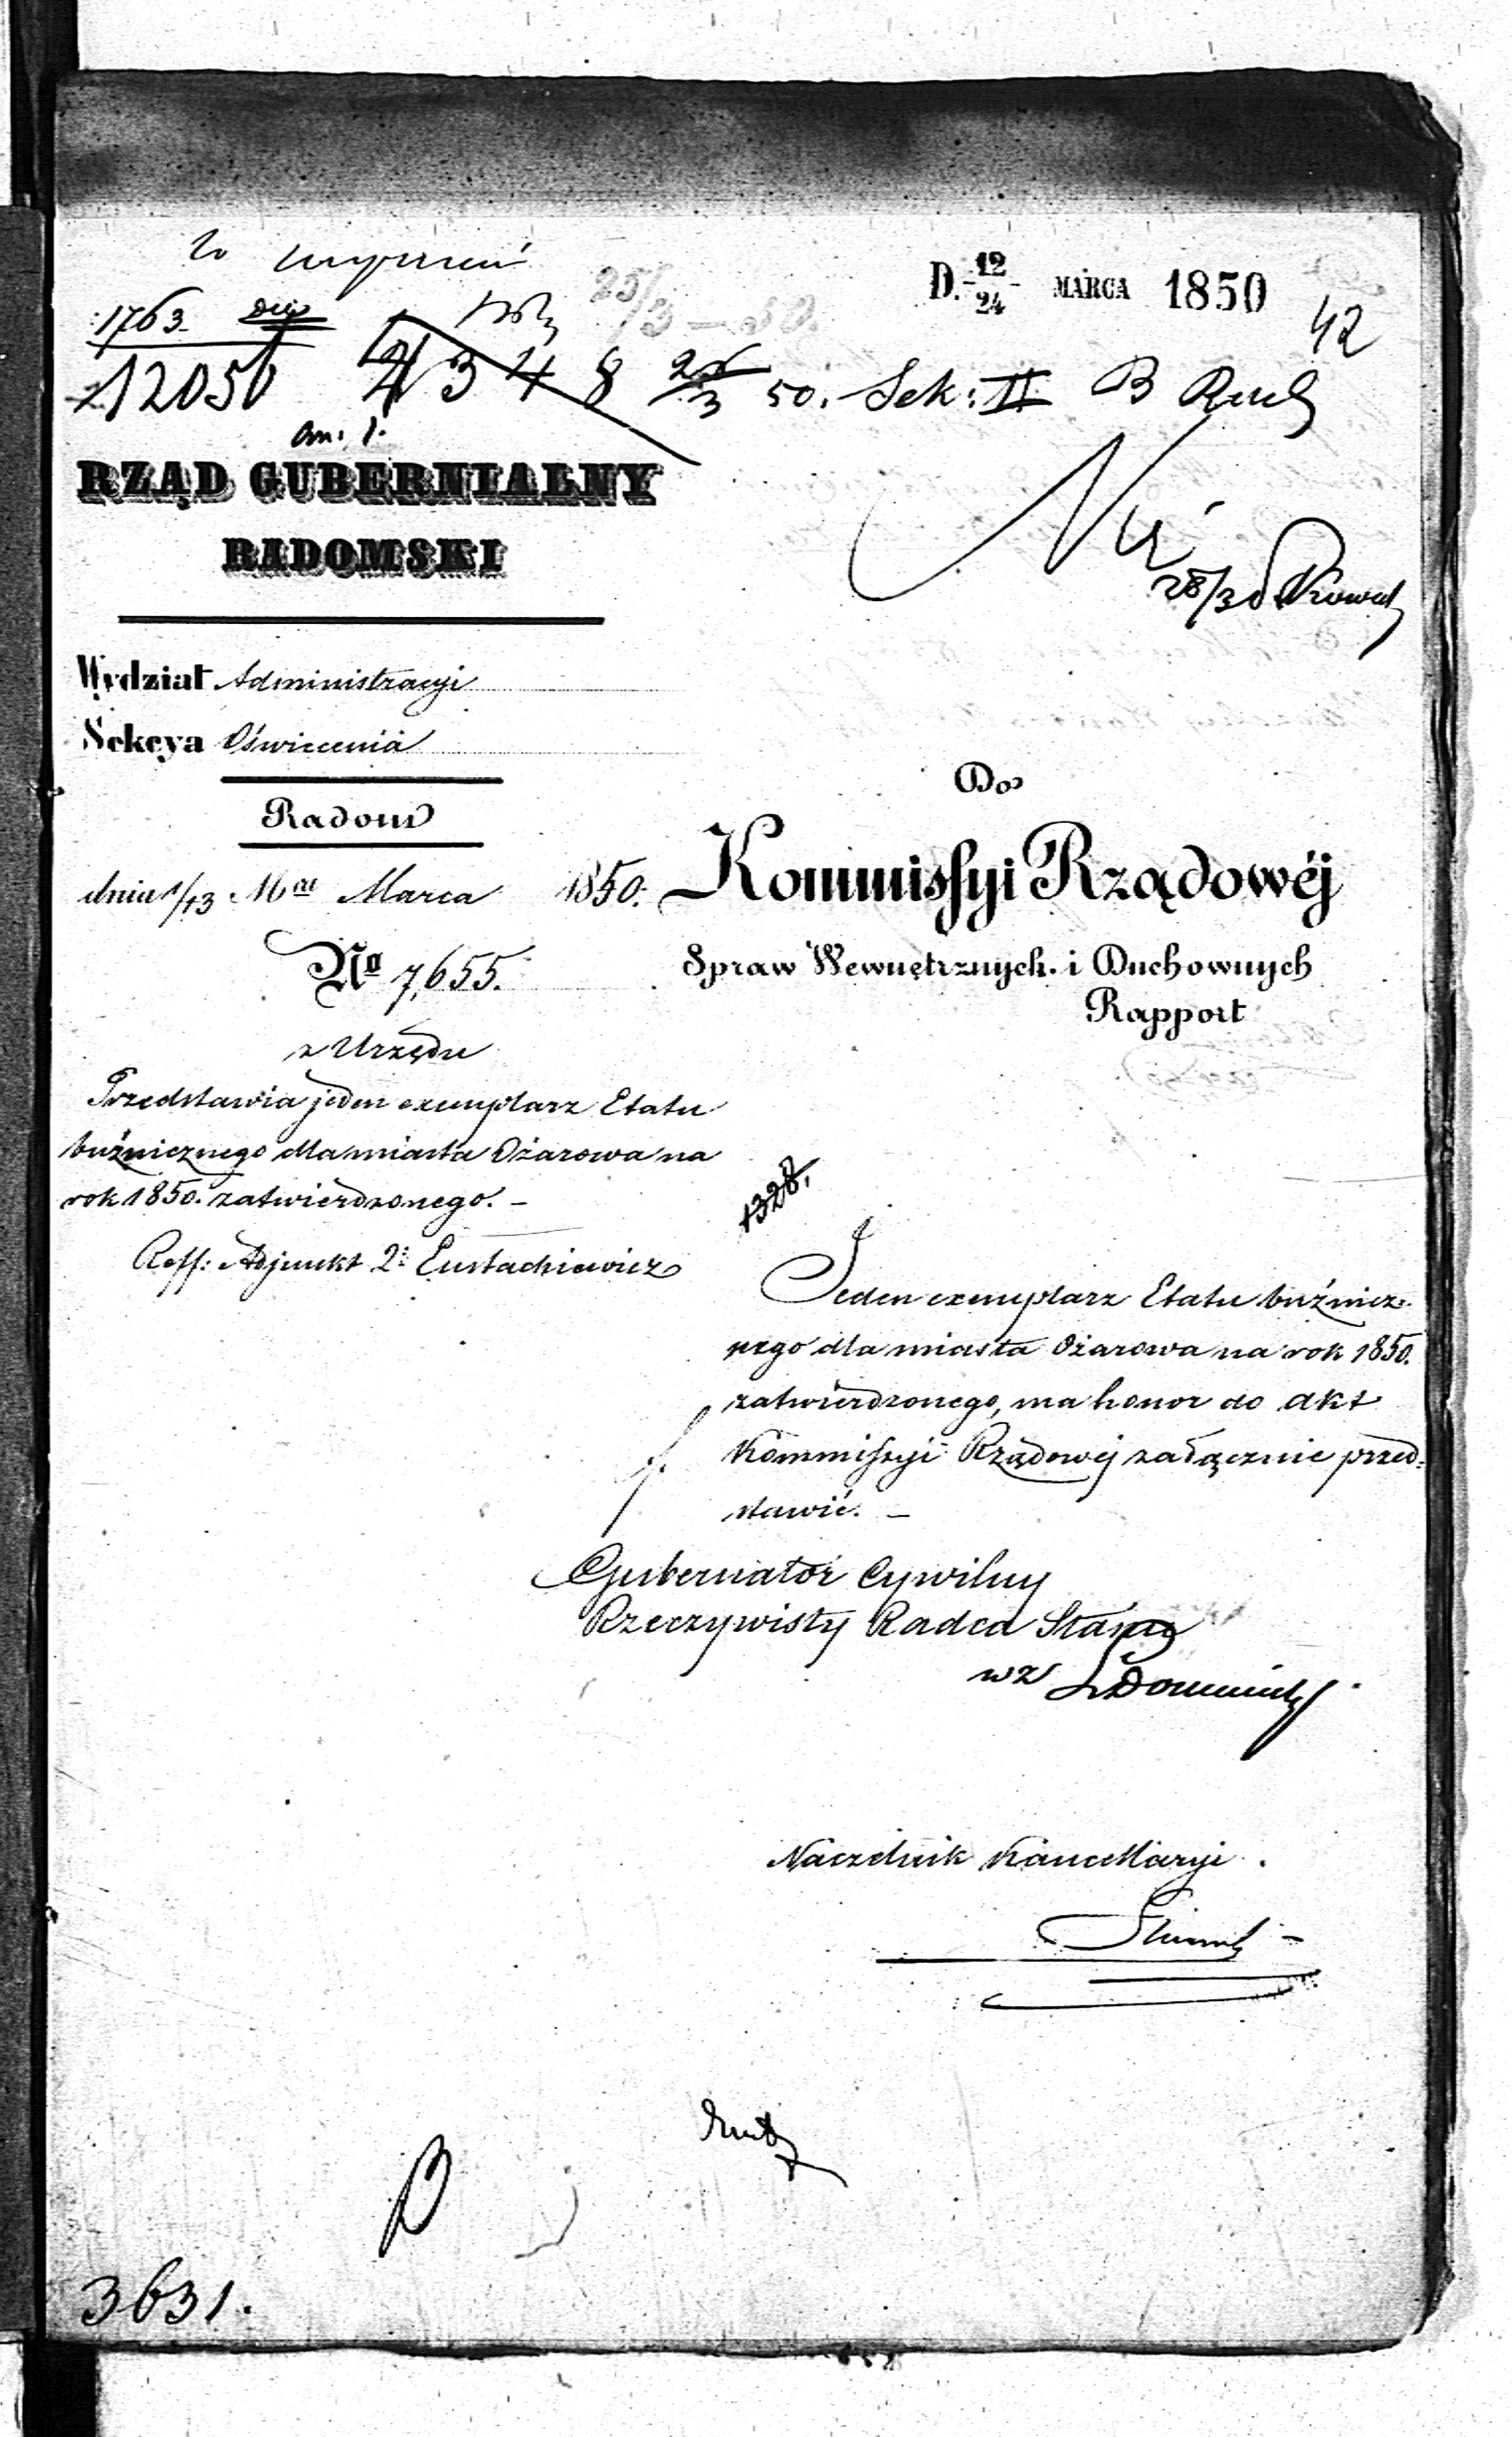 D. 12/24 MARCA 1850
42
1763
25/3 – 50.
12050
2348 25/3 50. Sek: II B
RZĄD GUBERNIALNY
RADOMSKI
Wydział Administracyi
Sekcya Oświecenia
Radom
dnia 1/13 Mca Marca 1850.
No 7,655.
z Urzędu
Przedstawia jeden exemplarz Etatu
bużnicznego dla miasta Ożarowa na
rok 1850. zatwierdzonego. –
Reff: Adjunkt 2: Eustachiewicz
Do
Kommissyi Rządowéj
Spraw Wewnętrznych i Duchownych
Rapport
1328.
Jeden exemplarz Etatu buźnicz:
nego dla miasta Ożarowa na rok 1850.
zatwierdzonego, ma honor do akt
Kommissyi Rządowéj załącznie przed:
stawić. –
Gubernator Cywilny
Rzeczywisty Radca Stanu
wz
Naczelnik Kancellaryi
3631.